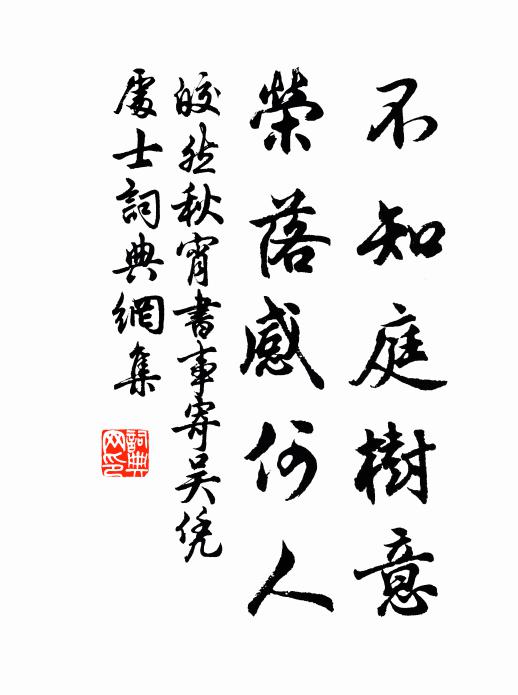 不知庭樹意
榮落感何人
皎然秋宵書事寄吴凭
處士詞典網集
詞典
网印